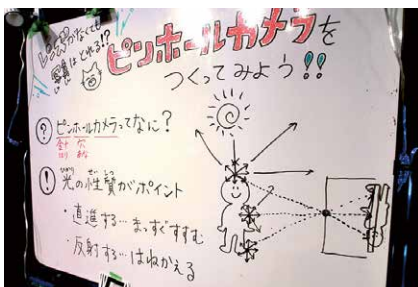 レンズがなくても
写真はとれる!?
ピンホールカメラを
つくってみよう!!
? ピンホールカメラってなに?
針 穴
はり あな
! 光の性質がポイント
ひかり せいしつ
・直進する…まっすぐすすむ
・反射する…はねかえる